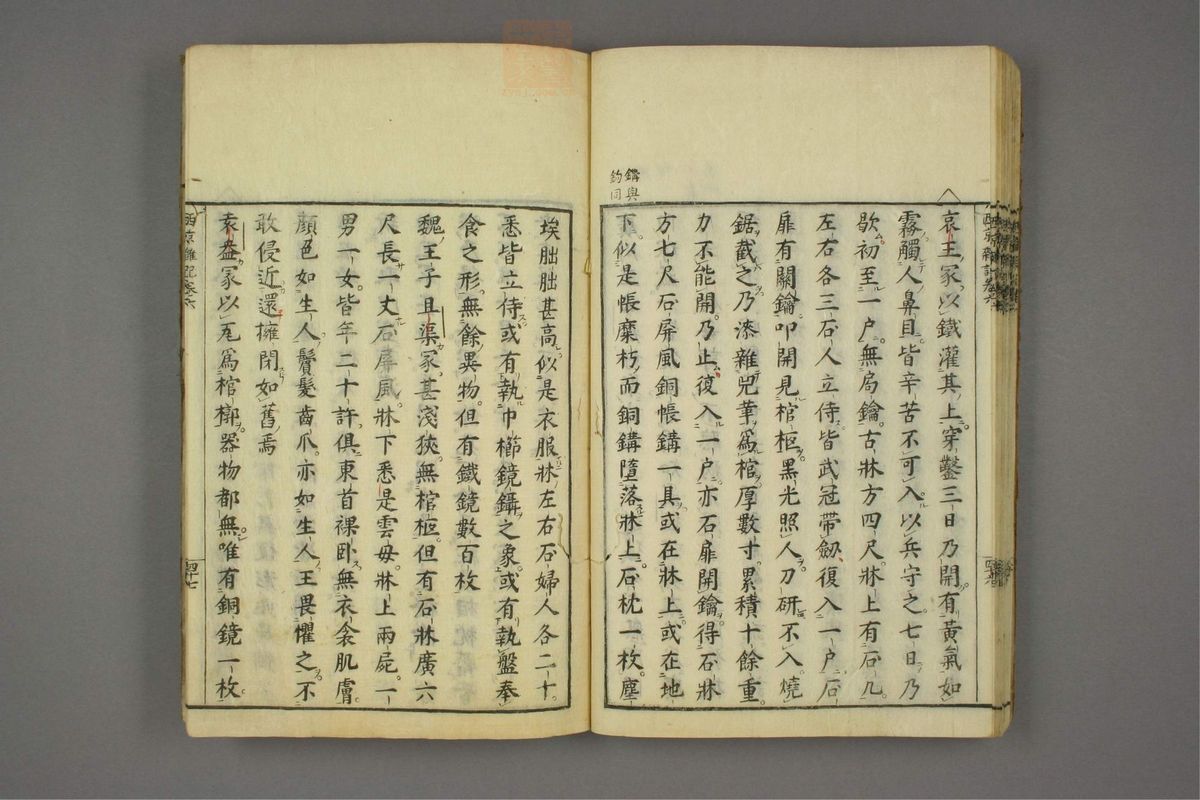 鐫與
鈎同
哀王冢以鐵灌其上穿鑿三日乃開有黃氣如
霧觸人鼻目皆辛苦不可入以兵守之七日乃
歇初至一户無扃鑰古牀方四尺牀上有石几
左右各三石人立侍皆武冠帶劒復入一户石
扉有關鑰叩開見棺柩黑光照人刀斫不入燒
鋸截之乃漆雜兕革爲棺厚數寸累積十餘重
力不能開乃止復入一户亦石扉開鑰得石牀
方七尺石屏風銅帳鐫一具或在牀上或在地
下似是帳糜朽而銅鐫墮落牀上石枕一枚塵
埃朏朏甚高似是衣服牀左右石婦人各二十
悉皆立侍或有執巾櫛鏡鑷之象或有執盤奉
食之形無餘異物但有鐵鏡數百枚
魏王子且渠冢甚淺狹無棺柩但有石牀廣六
尺長一丈石屏風牀下悉是雲母牀上兩屍一
男一女皆年二十許俱東首裸卧無衣衾肌膚
顔色如生人鬢髮齒爪亦如生人王畏懼之不
敢侵近還擁閉如舊焉
袁盎冢以瓦爲棺槨器物都無唯有銅鏡一枚
西京雜記卷六
四十七